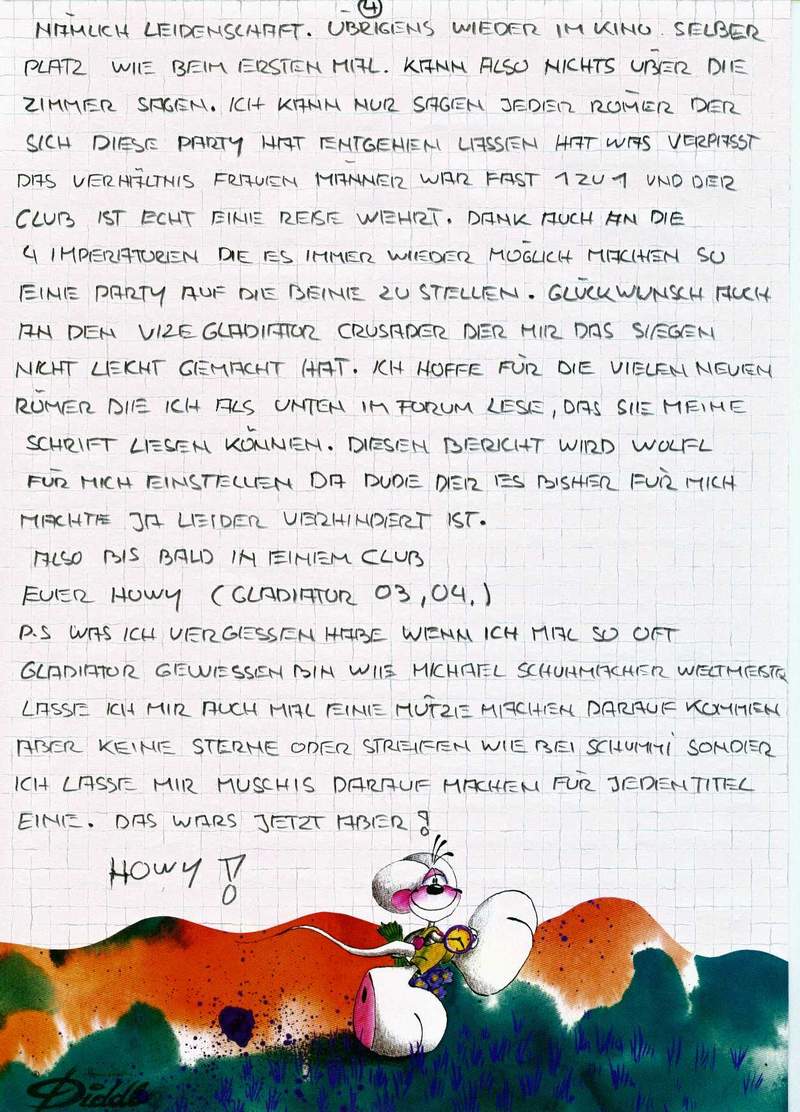 4
NÄMLICH LEIDENSCHAFT. ÜBRIGENS WIEDER IM KINO. SELBER
PLATZ WIE BEIM ERSTEN MAL. KANN ALSO NICHTS ÜBER DIE
ZIMMER SAGEN. ICH KANN NUR SAGEN JEDER RÖMER DER
SICH DIESE PARTY HAT ENTGEHEN LASSEN HAT WAS VERPASST
DAS VERHÄLTNIS FRAUEN MÄNNER WAR FAST 1 ZU 1 UND DER
CLUB IST ECHT EINE REISE WEHRT. DANK AUCH AN DIE
4 IMPERATOREN DIE ES IMMER WIEDER MÖGLICH MACHEN SO
EINE PARTY AUF DIE BEINE ZU STELLEN. GLÜCKWUNSCH AUCH
AN DEN VIZE GLADIATOR CRUSADER DER MIR DAS SIEGEN
NICHT LEICHT GEMACHT HAT. ICH HOFFE FÜR DIE VIELEN NEUEN
RÖMER DIE ICH ALS UNTEN IM FORUM LESE, DAS SIE MEINE
SCHRIFT LIESEN KÖNNEN. DIESEN BERICHT WIRD WOLFL
FÜR MICH EINSTELLEN DA DUDE DER ES BISHER FÜR MICH
MACHTE JA LEIDER VERHINDERT IST.
ALSO BIS BALD IN EINEM CLUB
EUER HOWY (GLADIATOR 03,04.)
P.S WAS ICH VERGESSEN HABE WENN ICH MAL SO OFT
GLADIATOR GEWESSEN BIN WIE MICHAEL SCHUHMACHER WELTMEISTER
LASSE ICH MIR AUCH MAL EINE MÜTZE MACHEN DARAUF KOMMEN
ABER KEINE STERNE ODER STREIFEN WIE BEI SCHUMMI SONDER
ICH LASSE MIR MUSCHIS DARAUF MACHEN FÜR JEDEN TITEL
EINE. DAS WARS JETZT ABER!
HOWY!
Diddl